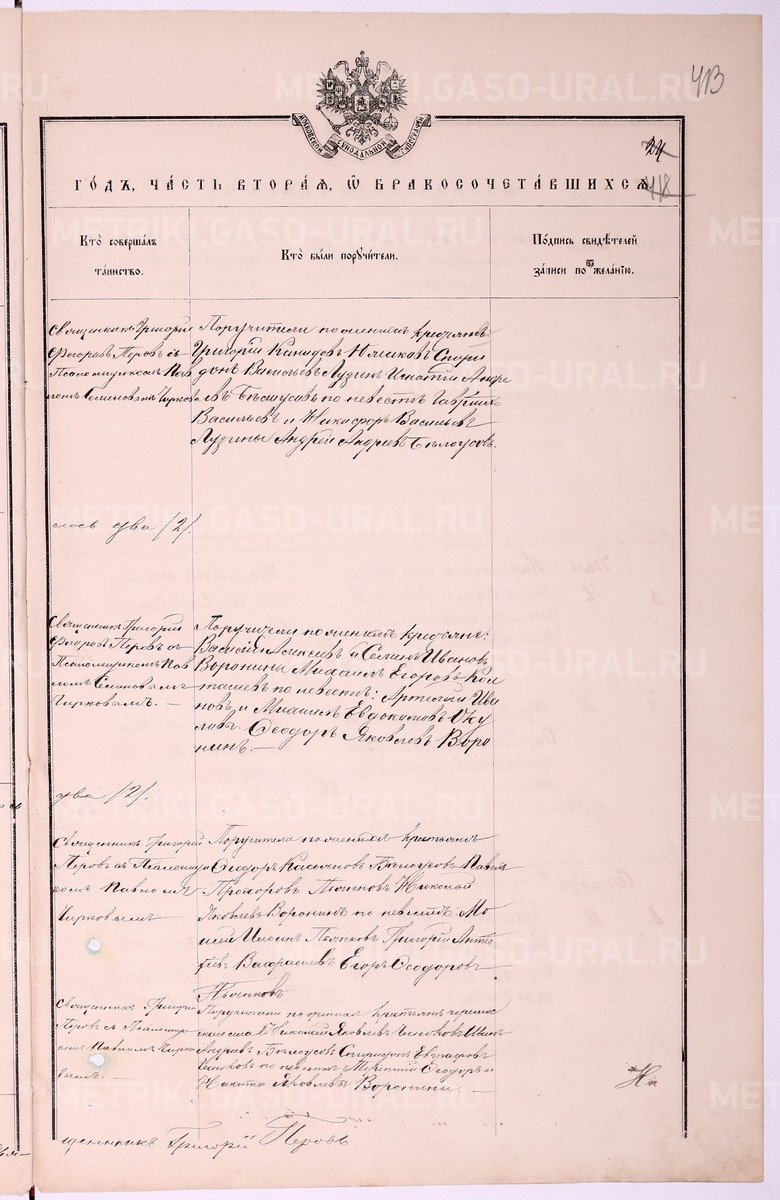 413
МОСКОВСКОЙ СѴНОДАЛЬНОЙ
24
418
ГОДЪ, ЧАСТЬ ВТОРАЯ, Ѿ БРАКОСОЧЕТАВШИХСЯ
Кто совершалъ
таинство.
Кто были поручители.
Подпись свидѣтелей
записи по желанію.
Священникъ Григорій
Ѳедоровъ Перовъ съ
Псаломщикомъ Пав
ломъ Семеновымъ Чирково
Поручители по женихѣ крестьяне
Григорій
Спири
донъ Васильевъ Лузинъ Игнатій Андре
евъ Бѣлоусовъ по невестѣ Гаврилъ
Васильевъ и Никифоръ Васильевъ
Лузины Андрей Андреевъ Бѣлоусовъ.
лось два /2/.
Священникъ Григорій
Ѳедоровъ Перовъ съ
Псаломщикомъ Пав
ломъ Семеновымъ
Чирковымъ. —
Поручители по женихѣ крестьяне:
Василій Алексѣевъ и Семенъ Ивановъ
Воронины Михаилъ Егоровъ Кол
ташевъ по невестѣ: Артемій Ива
новъ и Михаилъ Евдокимовъ Оку
ловы. Ѳеодоръ Яковлевъ Воро
нинъ. —
два /2/.
Священникъ Григорій
Перовъ съ Псаломщи
комъ Павломъ
Чирковымъ —
Поручители по женихѣ крестьяне
Ѳеодоръ Касьяновъ Бѣлоусовъ Павелъ
Прохоровъ Николай
Яковлевъ Воронинъ по невестѣ Мо
исей Пьянковъ Григорій
Егоръ Ѳеодоровъ
Пьянковъ
Священникъ Григорій
Перовъ съ Псаломщи
комъ Павломъ Чирко
вымъ. —
Поручители по женихѣ крестьяне
села Николай Яковлевъ
Андреевъ Бѣлоусовъ Спиридонъ Евграфовъ
по невестѣ Ѳеодоръ и
Никита Яковлевы Воронины. —
щенникъ Григорій Перовъ
METRIKI.GASO-URAL.RU